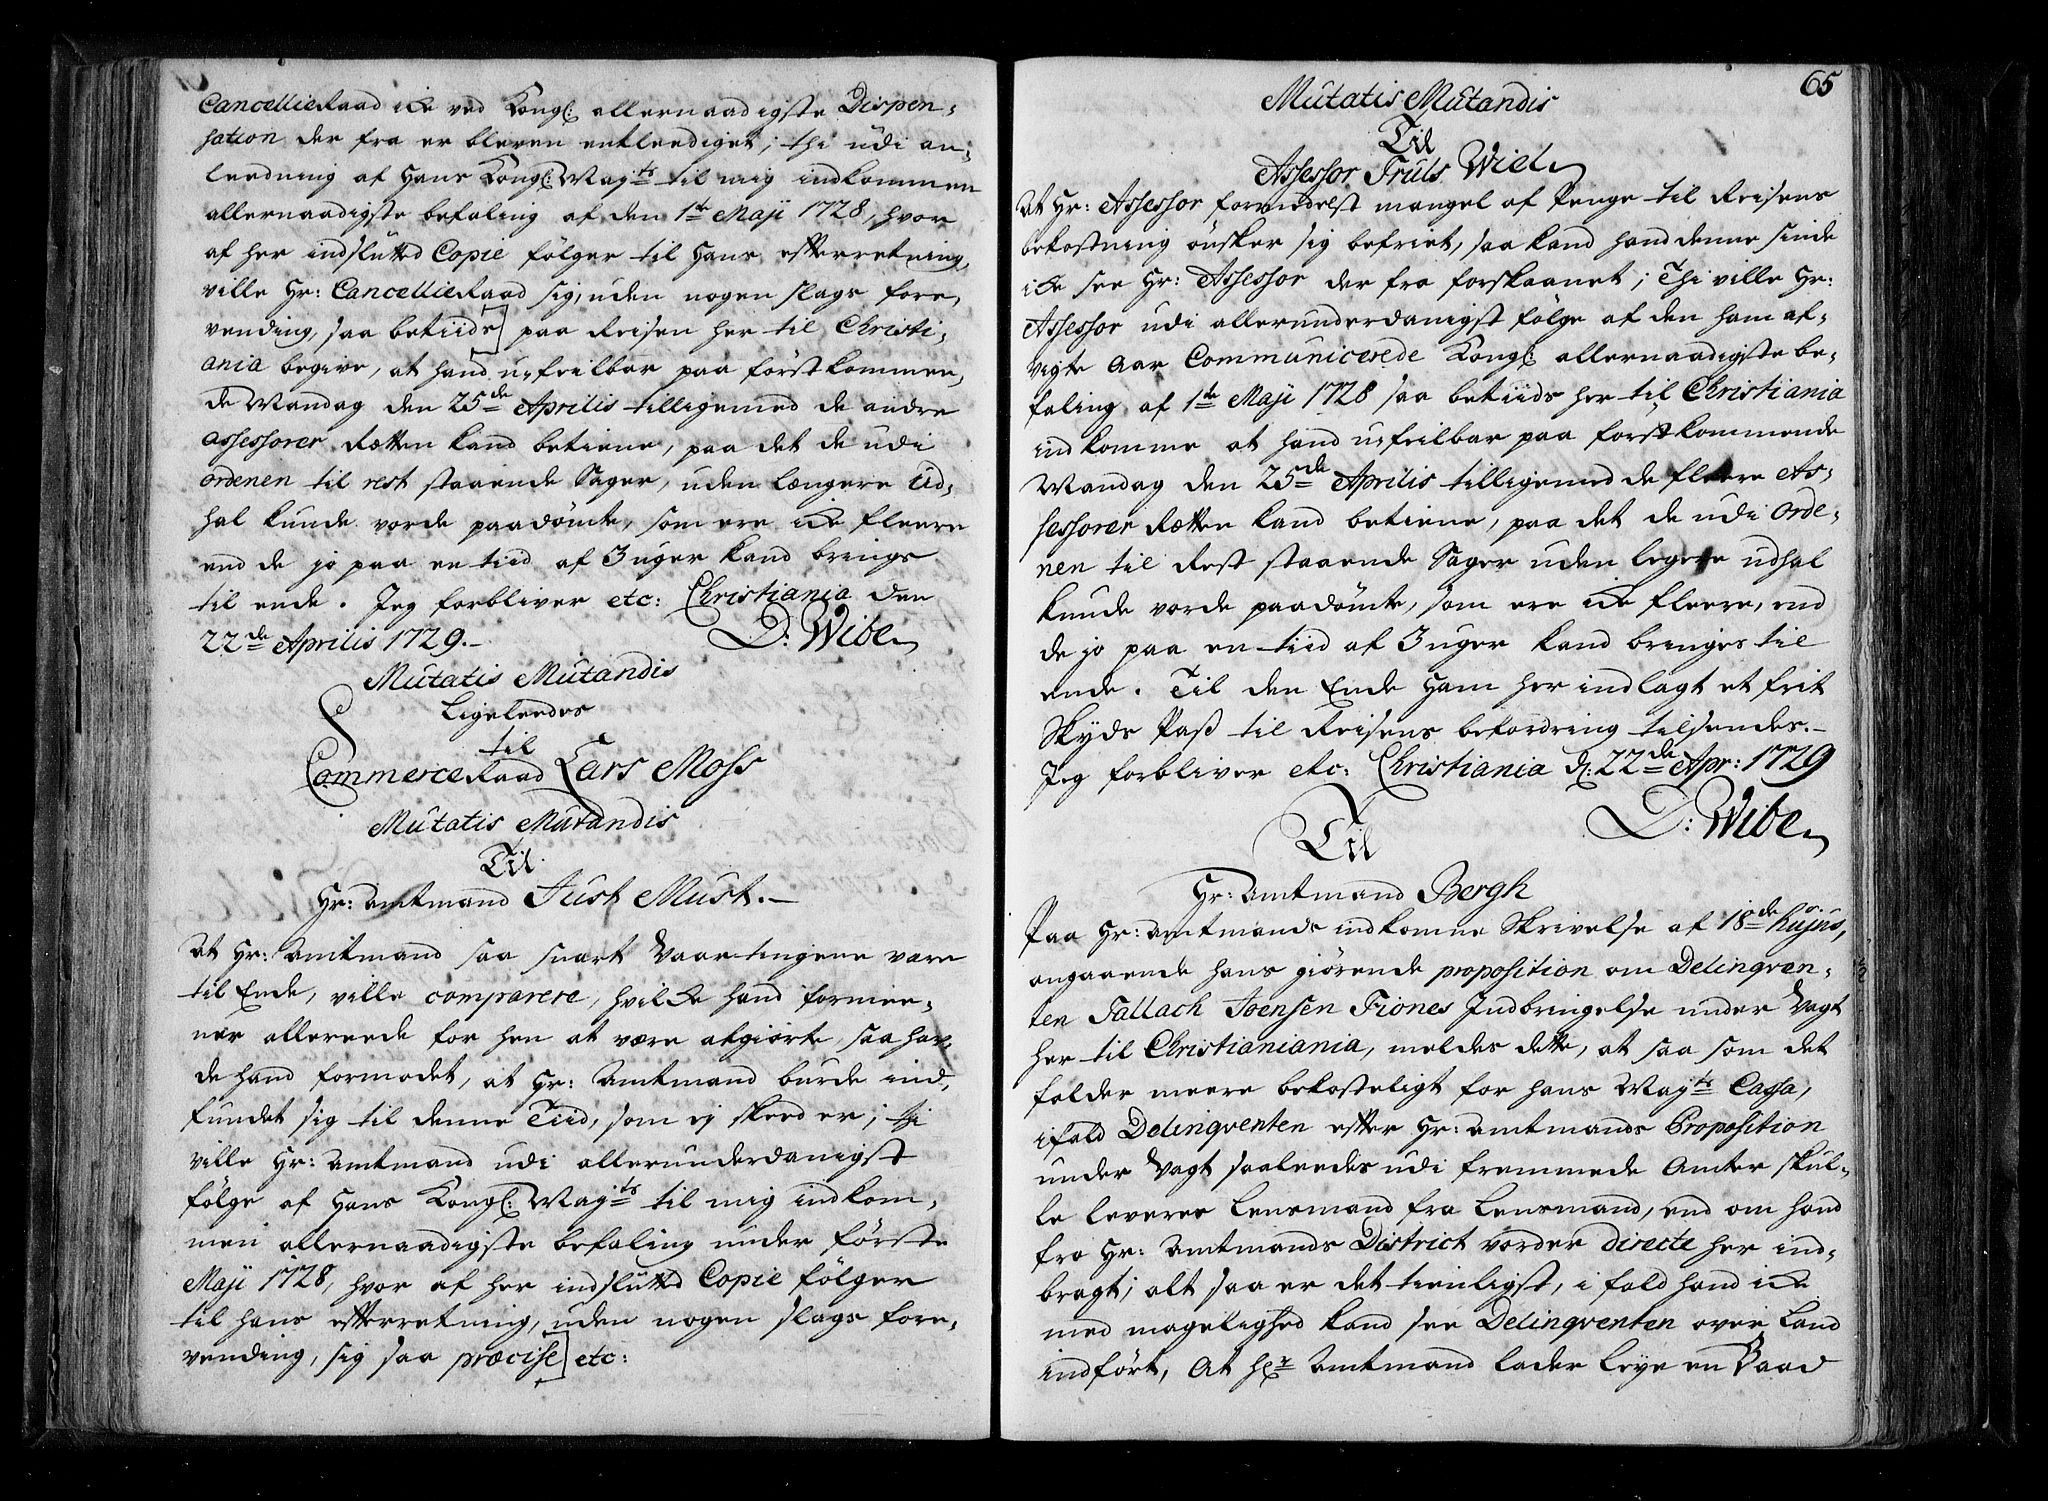 CancellieRaad icke ved Kongl: allernaadigste Dispen-
sation der fra er bleven entleediget; thi udi an-
leedning af Hans Kongl: May:ts til mig indkommen
allernaadigste befaling af den 1ste Maji 1728, hvor
af her indslutted Copie fölger til Hans efterretning,
ville Hr: CancellieRaad sig, uden nogen slags fore,
vending, saa betiids] paa Reisen her til Christi-
ania begive, at hand u-feilbar paa förstkommen,
de Mandag den 25de Aprilis tilligemed de andre
Assessorer Rætten kand betiene, paa det de udi
ordenen til rest staaende Sager, uden længere Ud-
hal kunde vorde paadömte, som ere icke fleere
end de jo paa en tiid af 3 uger kand brings
til ende. Jeg forbliver etc: Christiania den
22de Aprilis 1729.- D: Wibe
Mutatis Mutandis
Ligeleedes
til
CommerceRaad Lars Moss
Mutatis Mutandis
Til
Hr: Amtmand Just Must.-
At Hr: Amtmand saa snart Vaartingene vare
til Ende, ville comparere, hvilcke hand formee-
ner allereede for hen at være afgiorte, saa haf,
de hand formodet, at Hr: Amtmand burde ind,
fundet sig til denne Tiid, som ej skeed er; thi
ville Hr: Amtmand udi allerunderdanigst
fölge af Hans Kongl: May:ts til mig indkom-
men allernaadigste befaling under förste
Maji 1728, hvor af her indslutted Copie fölger
til hans efterretning, uden nogen slags fore,
vending, sig saa præcise] etc:
65
Mutatis Mutandis
Til
Assessor Truls Wiel
At Hr: Assessor formedelst mangel af Penge til Reisens
bekostning önsker sig befriet, saa kand hand denne sinde
icke see Hr: Assessor der fra forskaanet; Thi ville Hr:
Assessor udi allerunderdanigst fölge af den ham af-
vigte Aar Communicerede Kongl: allernaadigste be-
faling af 1ste Maji 1728 saa betiids her til Christiania
indkomme at hand u-feilbar paa forstkommende
Mandag den 25de Aprilis tilligemed de fleere As-
sessorer Rætten kand betiene, paa det de udi Orde-
nen til Rest staaende Sager uden legere udhal
kunde vorde paadömte, som ere icke fleere, end
de jo paa en tiid af 3 uger kand bringes til
ende. Til den Ende Ham her indlagt et frit
Skyds Pass til Reisens befordring tilsendes.-
Jeg forbliver etc: Christiania d: 22de Apr: 1729
D: Wibe
Til
Hr: Amtmand Bergh
Paa Hr: Amtmands indkomne Skrivelse af 18de hujus,
angaaende hans giörende proposition om Delinqven-
ten Tallach Joensen Fiones Indbringelse under Vagt
her til Christianiania, meldes dette, at saa som det
falder meere bekosteligt for hans May:ts Cassa,
ifald Delinqventen efter Hr: Amtmands Proposition
under Vagt saaleedes udi fremmede Amter skul-
le leveres Lensmand fra Lensmand, end om hand
fra Hr: Amtmands District vorder directe her ind-
bragt; alt saa er det tienligst, i fald hand icke
med magelighed kand see Delinqventen over Land
indfört, At Hr: Amtmand lader leye en Baad